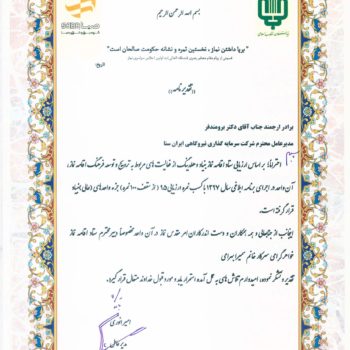 بسم الله الرحمن الرحیم
صبا
SABA
"برپا داشتن نماز، نخستین ثمره و نشانه حکومت صالحان است"
«تقدیرنامه»
برادر ارجمند جناب آقای دکتر برومندفر
مدیرعامل محترم شرکت سرمایه گذاری نیروگاهی ایران سنا
احتراماً؛ بر اساس ارزیابی ستاد اقامه نماز بنیاد و هلدینگ از فعالیت های مربوط به ترویج و توسعه فرهنگ اقامه نماز،
آن واحد در اجرای برنامه ابلاغی سال ۱۳۹۷ با کسب نمره ارزیابی ۹۵ (از سقف ۱۰۰ نمره) جزء واحدهای عالی بنیاد
قرار گرفته است.
اینجانب از جنابعالی و همه همکاران و دست اندرکاران امر مقدس نماز در آن واحد خصوصاً دبیر محترم ستاد اقامه نماز
خواهر گرامی سرکار خانم سمیرا بهرامی
تقدیر و تشکر نموده، امیدوارم تلاش های به عمل آمده و استمرار یابد و مورد قبول خداوند متعال قرار گیرد.